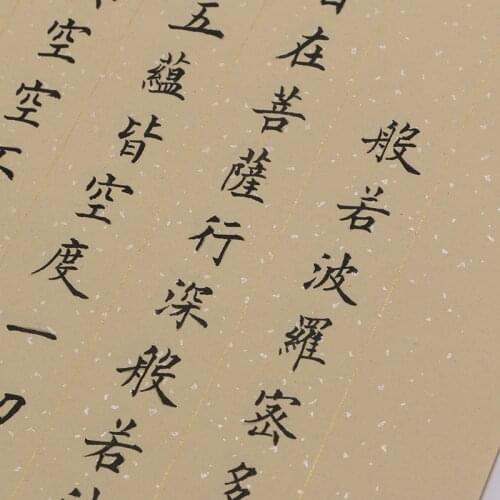 般若波羅密多
在菩薩行深般若波
五蘊皆空度一切
空空不